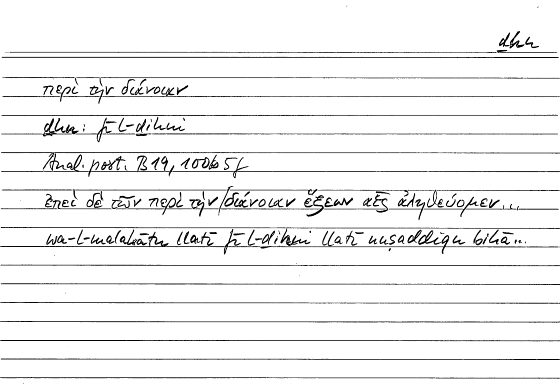 ḏhn
περὶ τὴν διάνοιαν
ḏhn: fī l-ḏihni
Anal. post. B 19, 100b 5f
ἐπεὶ δὲ τῶν περὶ τὴν/διάνοιαν ἕξεων αἷς ἀληθεύομεν...
wa-l-malakātu llatī fī l-ḏihni llatī nuṣaddiqu bihā...